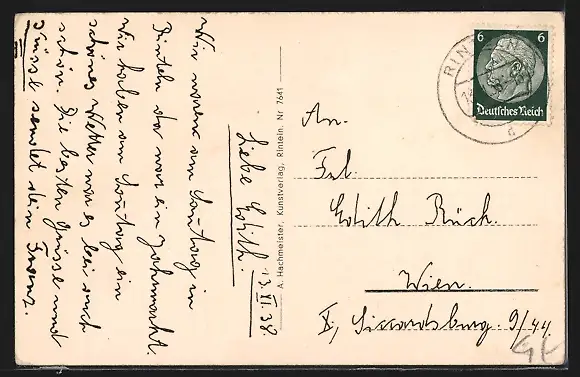 13. XI. 38.
Liebe Edith.
Wir waren am Sonntag in
Rinteln da war ein Jahrmarkt.
Wir haben am Sonntag ein
schönes Wetter war es bei euch
schön. Die besten Grüsse und
Küsse sendet dein Franz.
A. Hachmeister, Kunstverlag, Rinteln. Nr 7641
6 6
Deutsches Reich
RINTELN
d
An.
Frl.
Edith Rück.
Wien.
X, Siccardsburg. 9/44